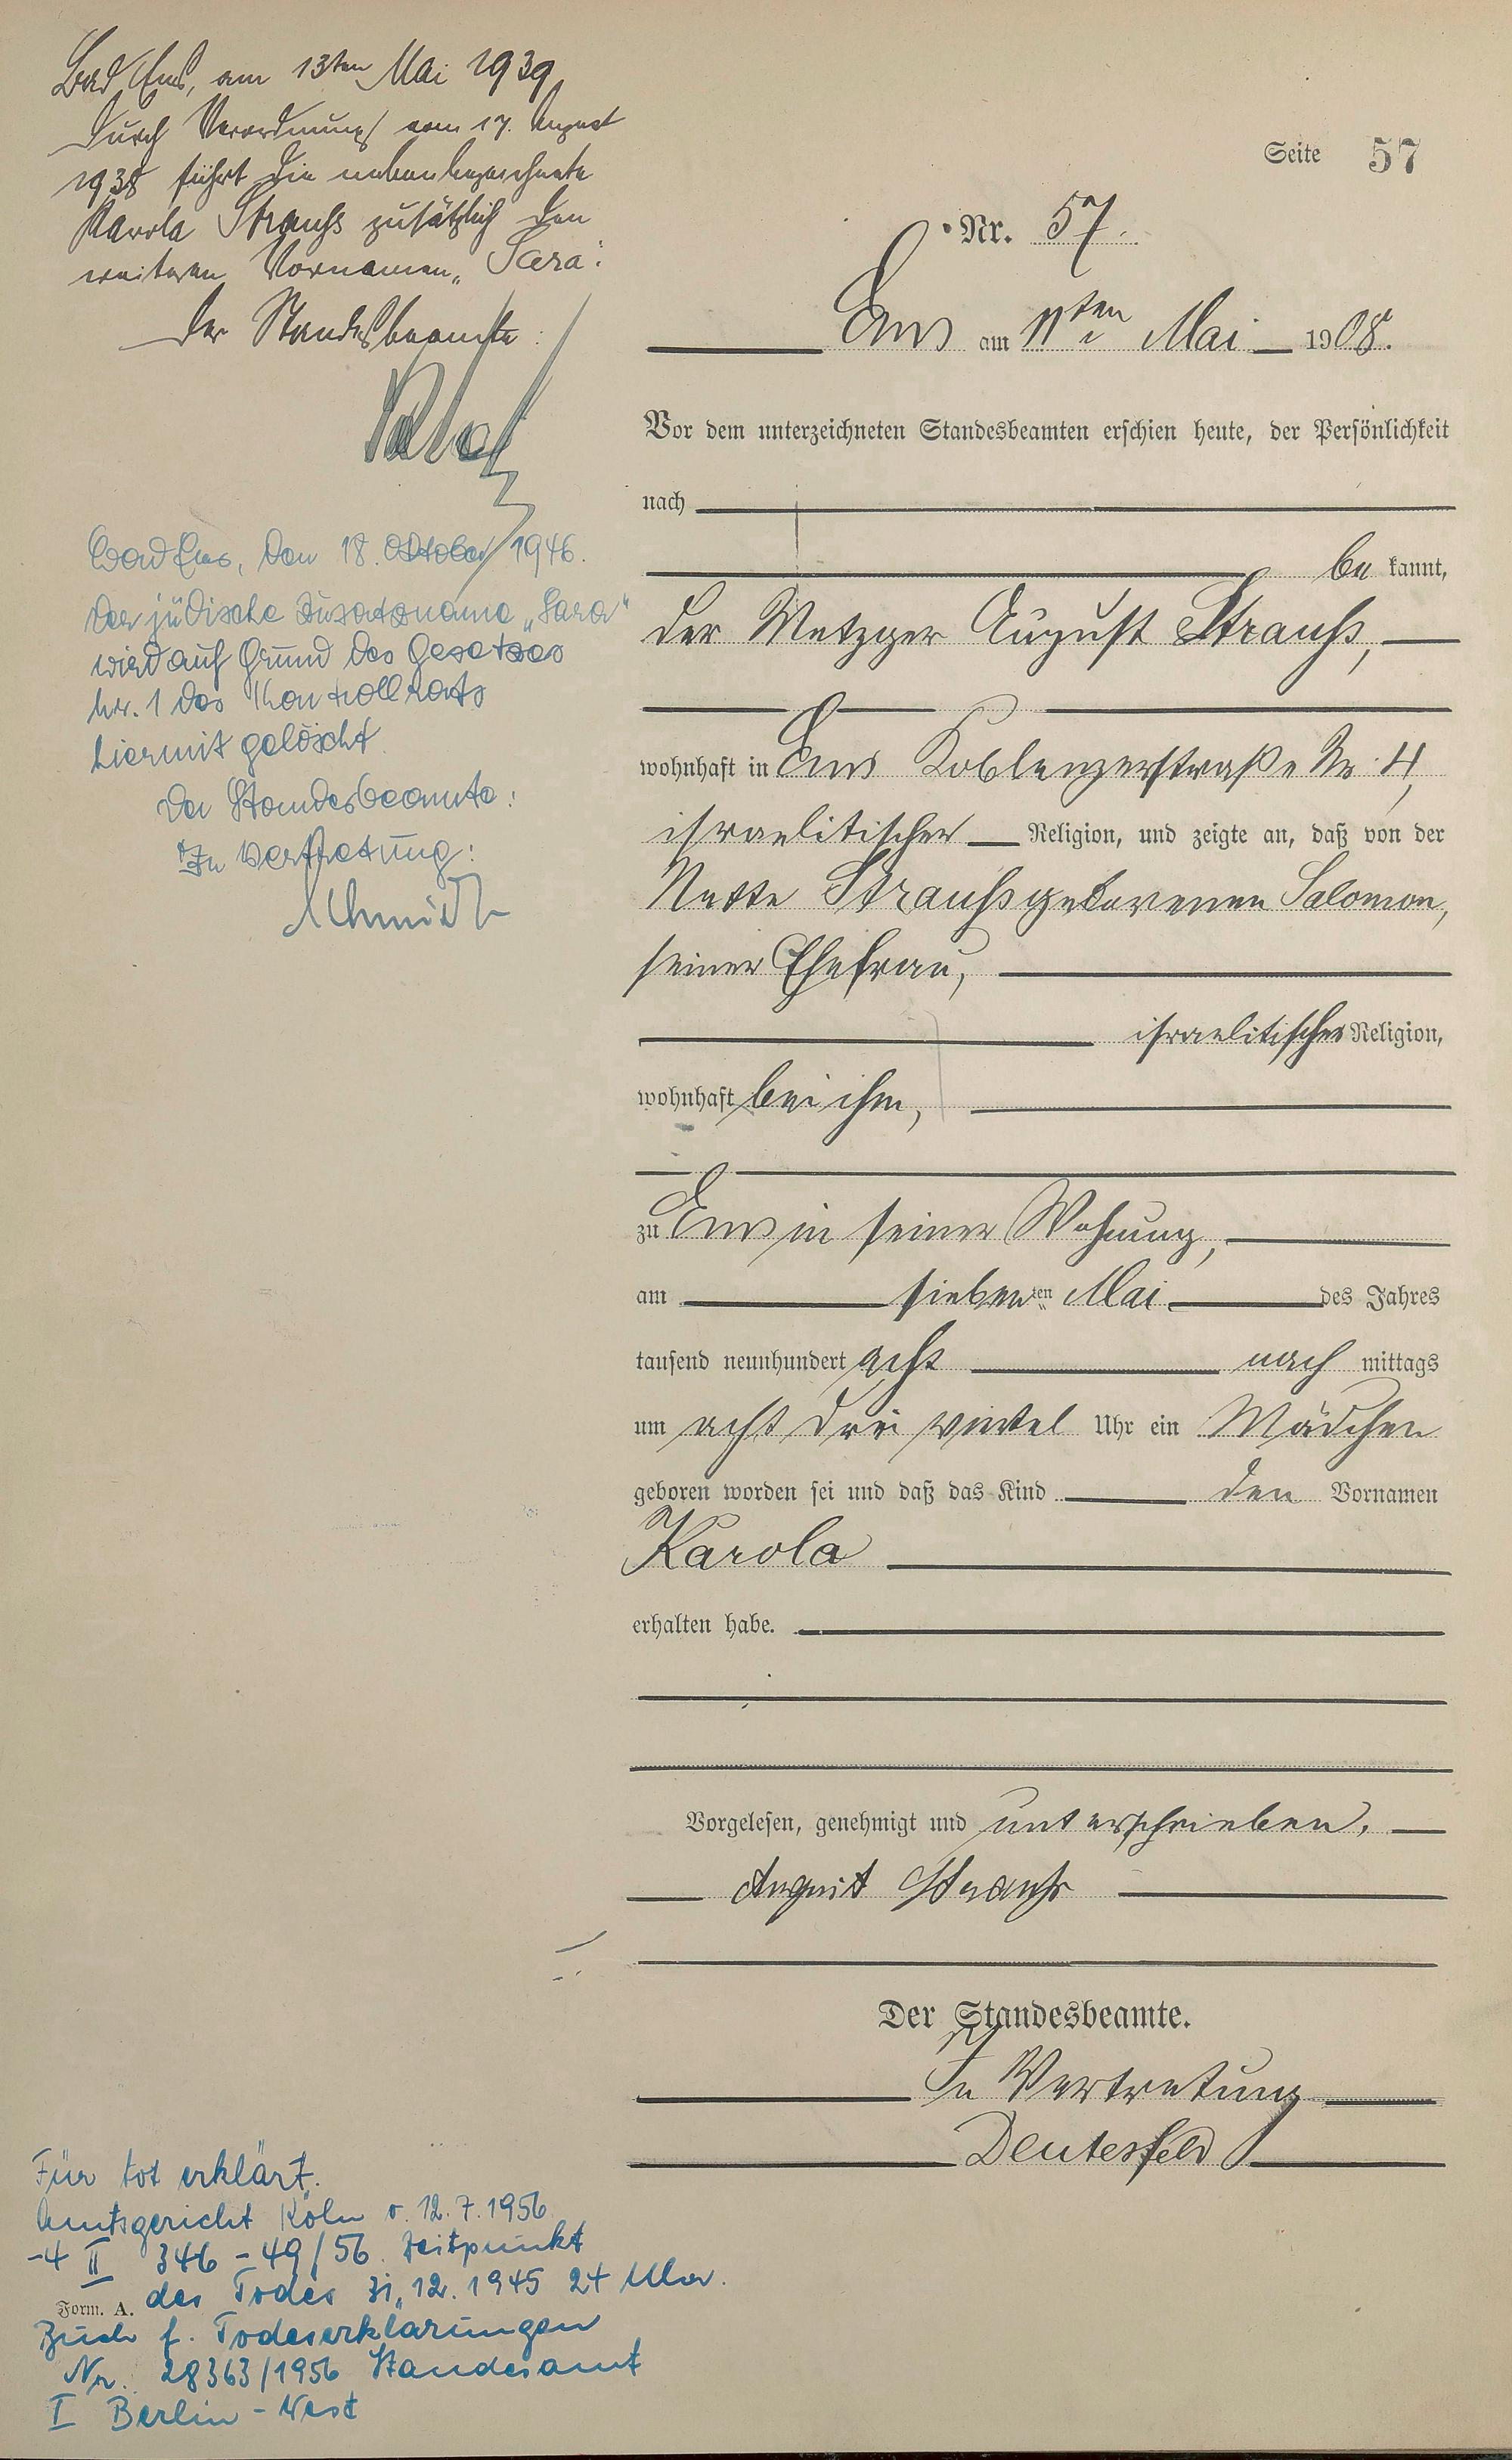 Bad Ems, am 13ten Mai 1939
Durch Verordnung vom 17. August
1938 führt die nebenbezeichnete
Karola Strauß zusätzlich den
weiteren Vornamen „Sara“.
Der Standesbeamte:
Bad Ems, den 18. Oktober 1946.
Der jüdische Zusatzname „Sara“
wird auf Grund des Gesetzes
Nr. 1 des Kontrollrats
hiermit gelöscht.
Der Standesbeamte:
In Vertretung:
Schmidt
Seite 57
Nr. 57.
Ems am 11ten Mai 1908.
Vor dem unterzeichneten Standesbeamten erschien heute, der Persönlichkeit
nach
be kannt,
der Metzger August Strauß,
wohnhaft in Ems Koblenzerstraße Nr. 4,
israelitischer Religion, und zeigte an, daß von der
Nette Strauß geborenen Salomon,
seiner Ehefrau,
israelitischer Religion,
wohnhaft bei ihm,
zu Ems in seiner Wohnung,
am siebenten Mai des Jahres
tausend neunhundert acht nach mittags
um acht drei viertel Uhr ein Mädchen
geboren worden sei und daß das Kind den Vornamen
Karola
erhalten habe.
Vorgelesen, genehmigt und unterschrieben.
August Strauß
Der Standesbeamte.
In Vertretung
Deutesfeld
Für tot erklärt.
Amtsgericht Köln v. 12.7.1956
-4 II 346-49/56. Zeitpunkt
des Todes 31.12.1945 24 Uhr.
Form. A.
Buch f. Todeserklärungen
Nr. 28363/1956 Standesamt
I Berlin-West